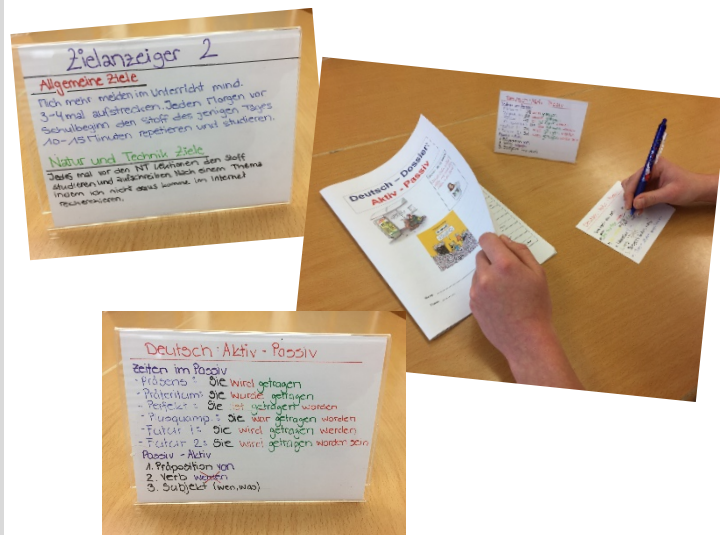 Zielanzeiger 2
Allgemeine Ziele
Mich mehr melden im Unterricht mind.
3-4 mal aufstrecken. Jeden Morgen vor
Schulbeginn den Stoff des jenigen Tages
10-15 Minuten repetieren und studieren.
Natur und Technik Ziele
Jedes mal vor den NT Lektionen den Stoff
studieren und aufschreiben. Nach einem Thema
indem ich nicht draus komme im Internet
recherchieren.
Deutsch - Dossier:
Aktiv - Passiv
Deutsch: Aktiv - Passiv
Zeiten im Passiv
- Präsens: Sie wird getragen
- Präteritum: Sie wurde getragen
- Perfekt: Sie ist getragen worden
- Plusquamp.: Sie war getragen worden
- Futur 1: Sie wird getragen werden
- Futur 2: Sie wird getragen worden sein
Passiv - Aktiv
1. Präposition von
2. Verb werden
3. Subjekt (wen, was)